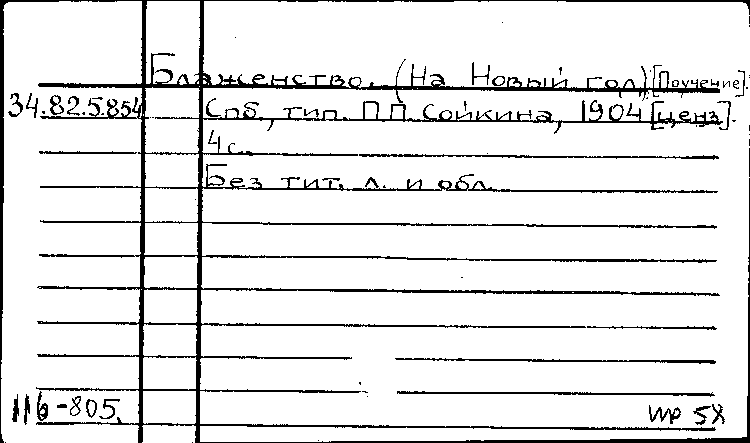 Блаженство. (На Новый год) [Поучение].
34.82.5.854 Спб., тип. П.П. Сойкина, 1904 [ценз].
4 с.
Без тит. л. и обл.
116-805.